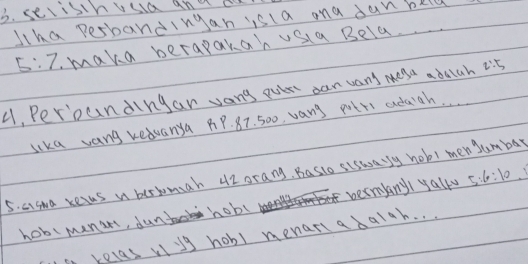 3. selisih usia
Jika Perbandingan usia ana dan
5:7. maka berapakah usia Bela....
4. Perbandingan vang putri dan vang Mega adalah 2:5
Jika vang keduanya RP.87.500, vang putri adalah....
5. siswa kelas berjumlah 42 orang. Rasio siswa yg hobi menggambar
hobi menari, dan hobi bernyanyi yaitu 5:6:10.
kelas yg hobi menari adalah...